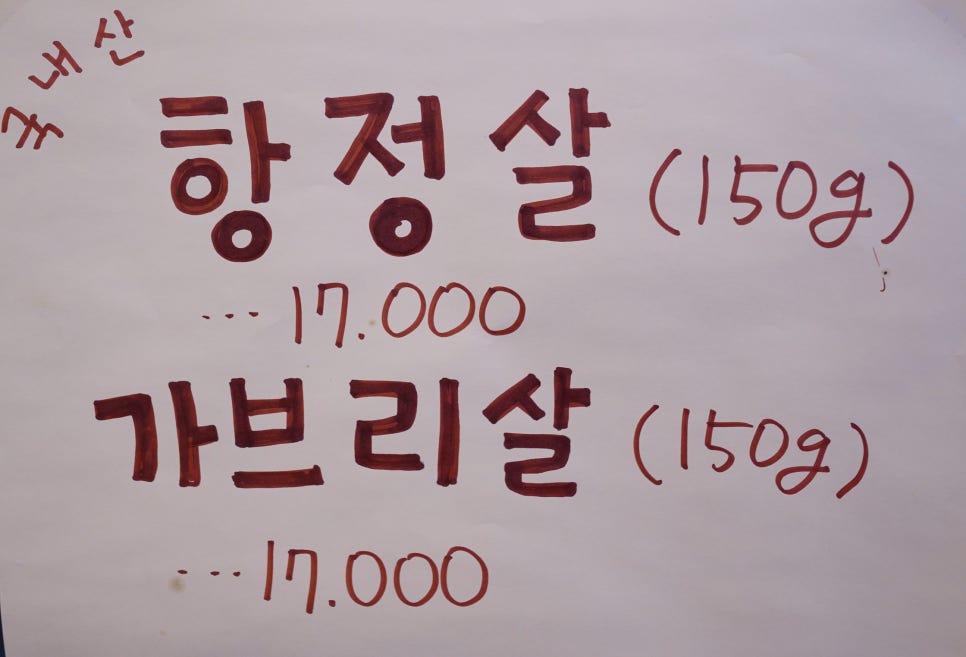 국내산
항정살 (150g)
... 17.000
가브리살 (150g)
... 17.000